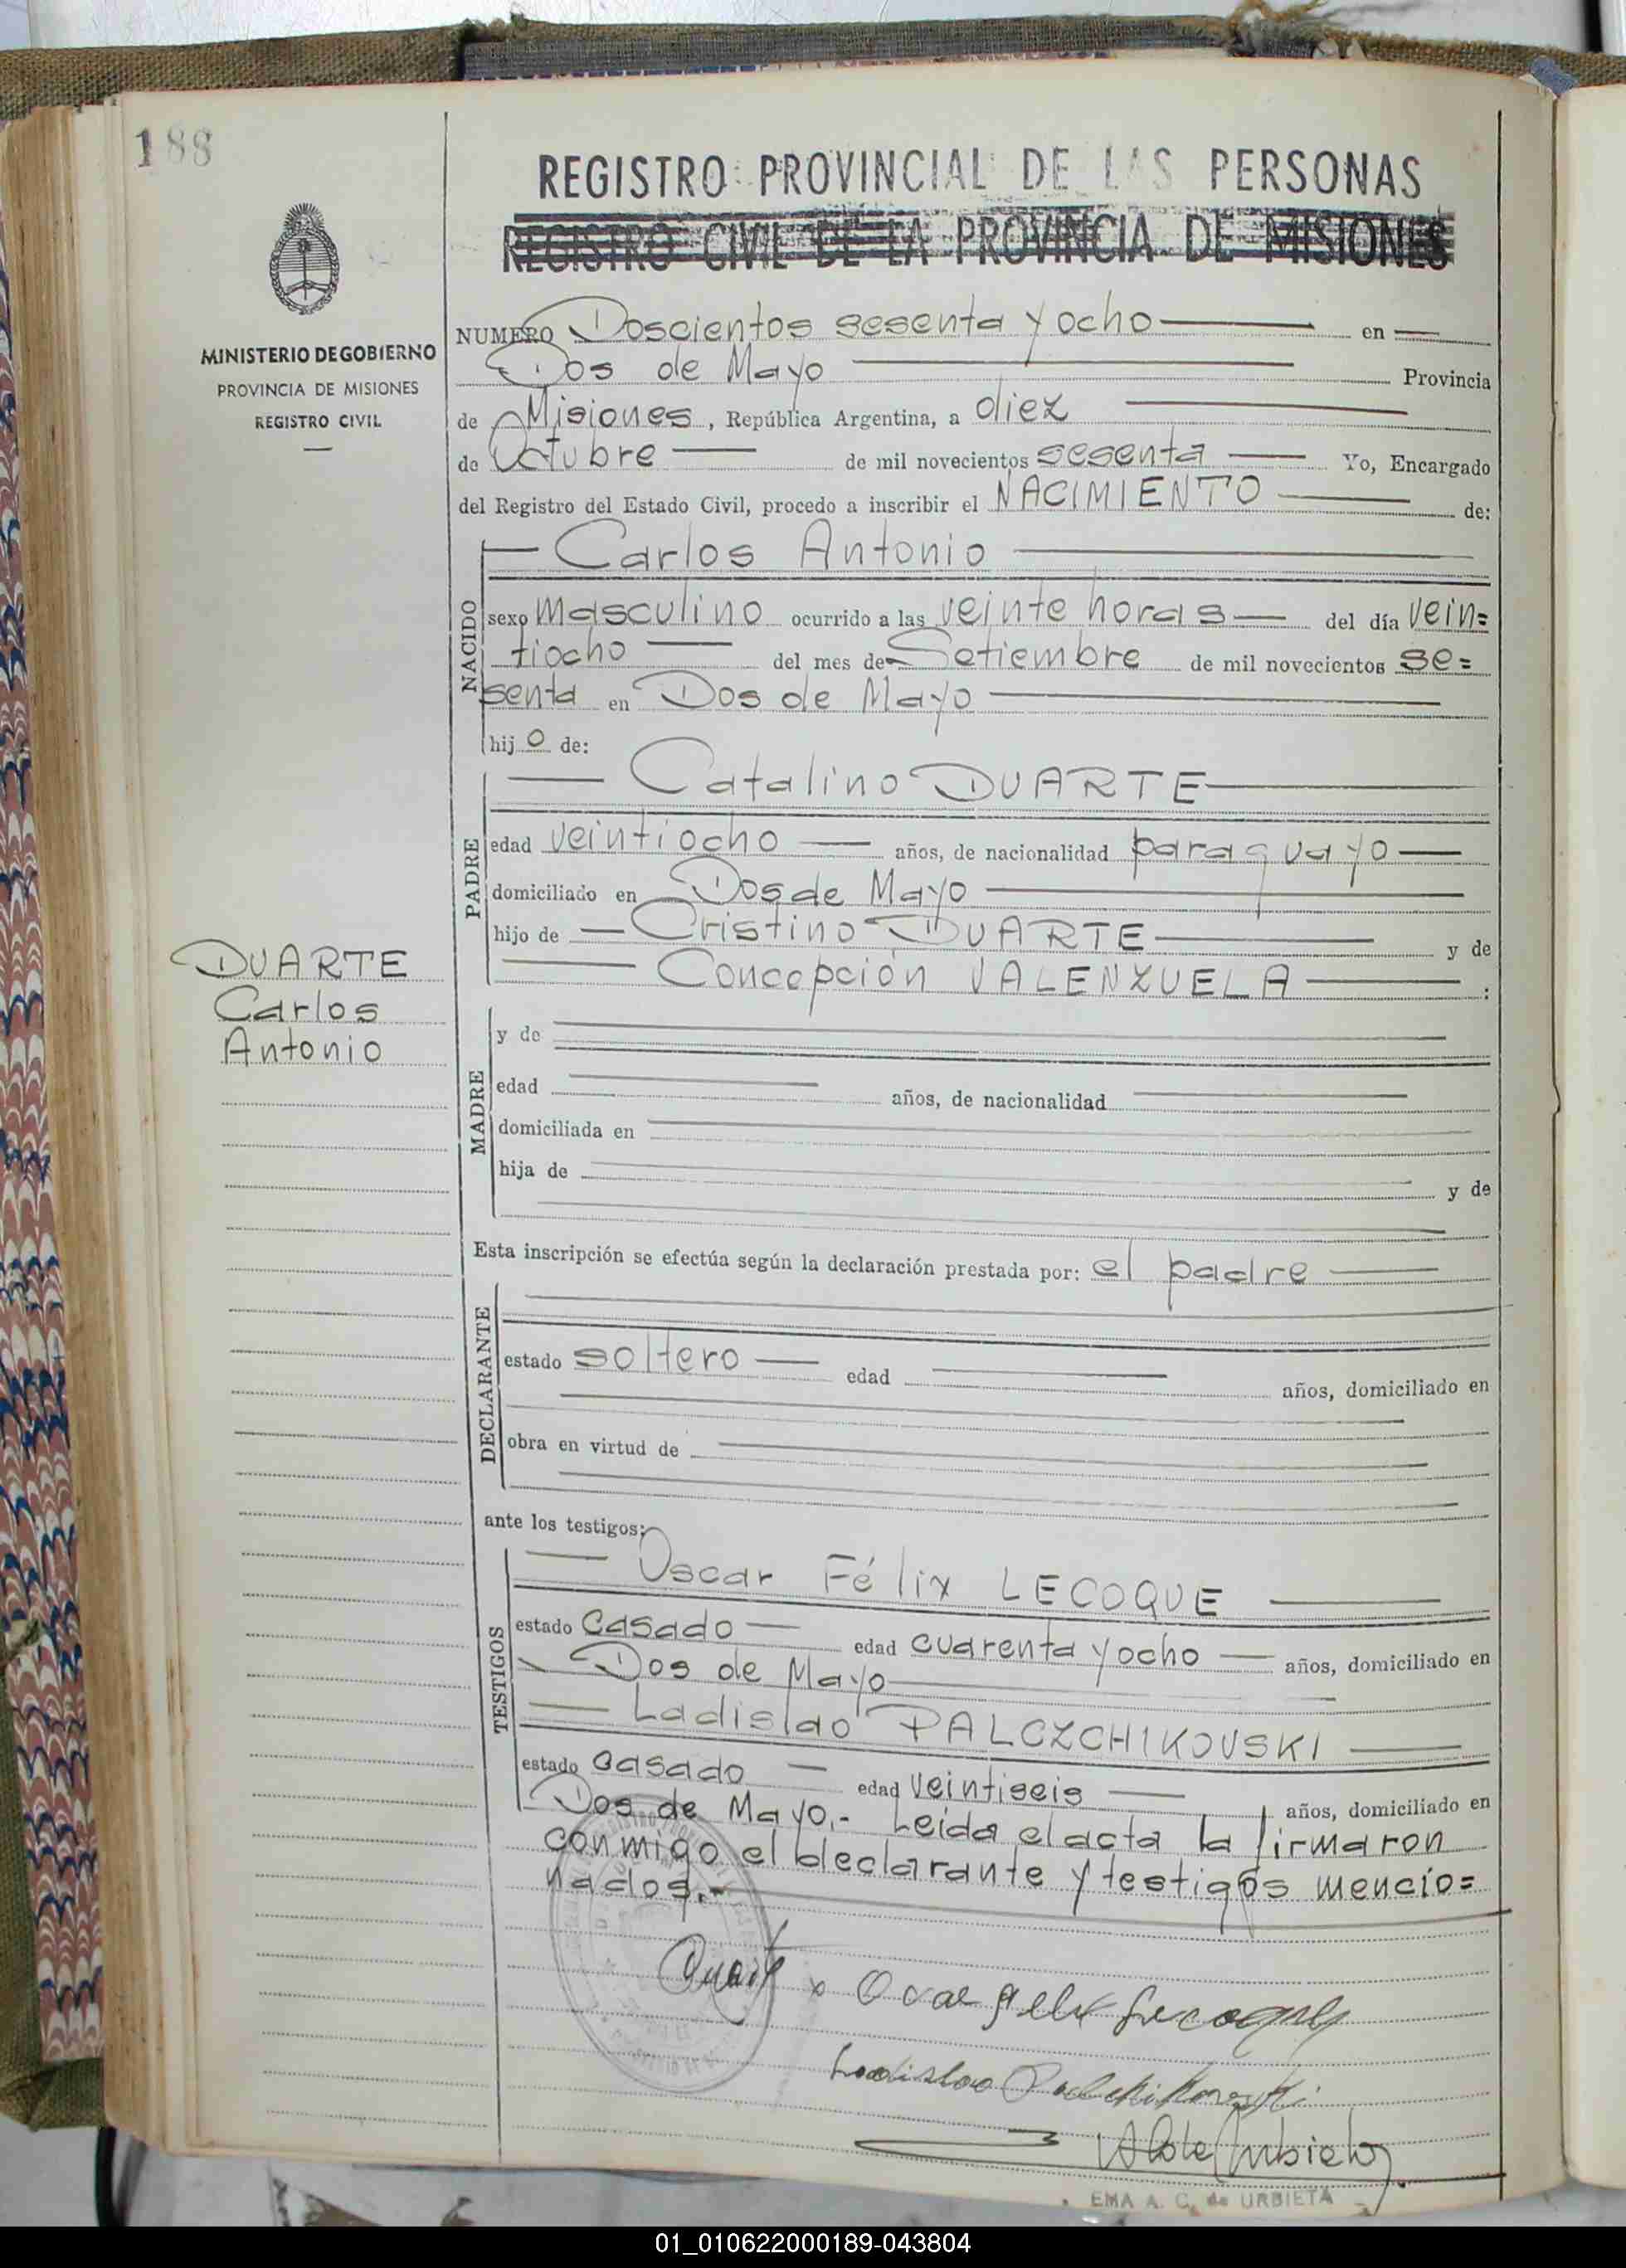 188
REGISTRO PROVINCIAL DE LAS PERSONAS
REGISTRO CIVIL DE LA PROVINCIA DE MISIONES
MINISTERIO DE GOBIERNO
PROVINCIA DE MISIONES
REGISTRO CIVIL
NUMERO Doscientos sesenta y ocho en
Dos de Mayo Provincia
de Misiones, República Argentina, a diez
de Octubre de mil novecientos sesenta Yo, Encargado
del Registro del Estado Civil, procedo a inscribir el NACIMIENTO de:
NACIDO
Carlos Antonio
sexo masculino ocurrido a las veinte horas del día vein=
tiocho del mes de Setiembre de mil novecientos se=
senta en Dos de Mayo
hijo de:
PADRE
Catalino DUARTE
edad veintiocho años, de nacionalidad paraguayo
domiciliado en Dos de Mayo
hijo de Cristino DUARTE y de
Concepción VALENZUELA :
DUARTE
Carlos
Antonio
MADRE
y de
edad años, de nacionalidad
domiciliada en
hija de y de
Esta inscripción se efectúa según la declaración prestada por: el padre
DECLARANTE
estado soltero edad años, domiciliado en
obra en virtud de
ante los testigos:
TESTIGOS
Oscar Félix LECOQUE
estado casado edad cuarenta y ocho años, domiciliado en
Dos de Mayo
Ladislao PALCZCHIKOVSKI
estado casado edad veintiseis años, domiciliado en
Dos de Mayo.- Leída el acta la firmaron
conmigo el declarante y testigos mencio=
nados.-
EMA A. C. de URBIETA
01_010622000189-043804